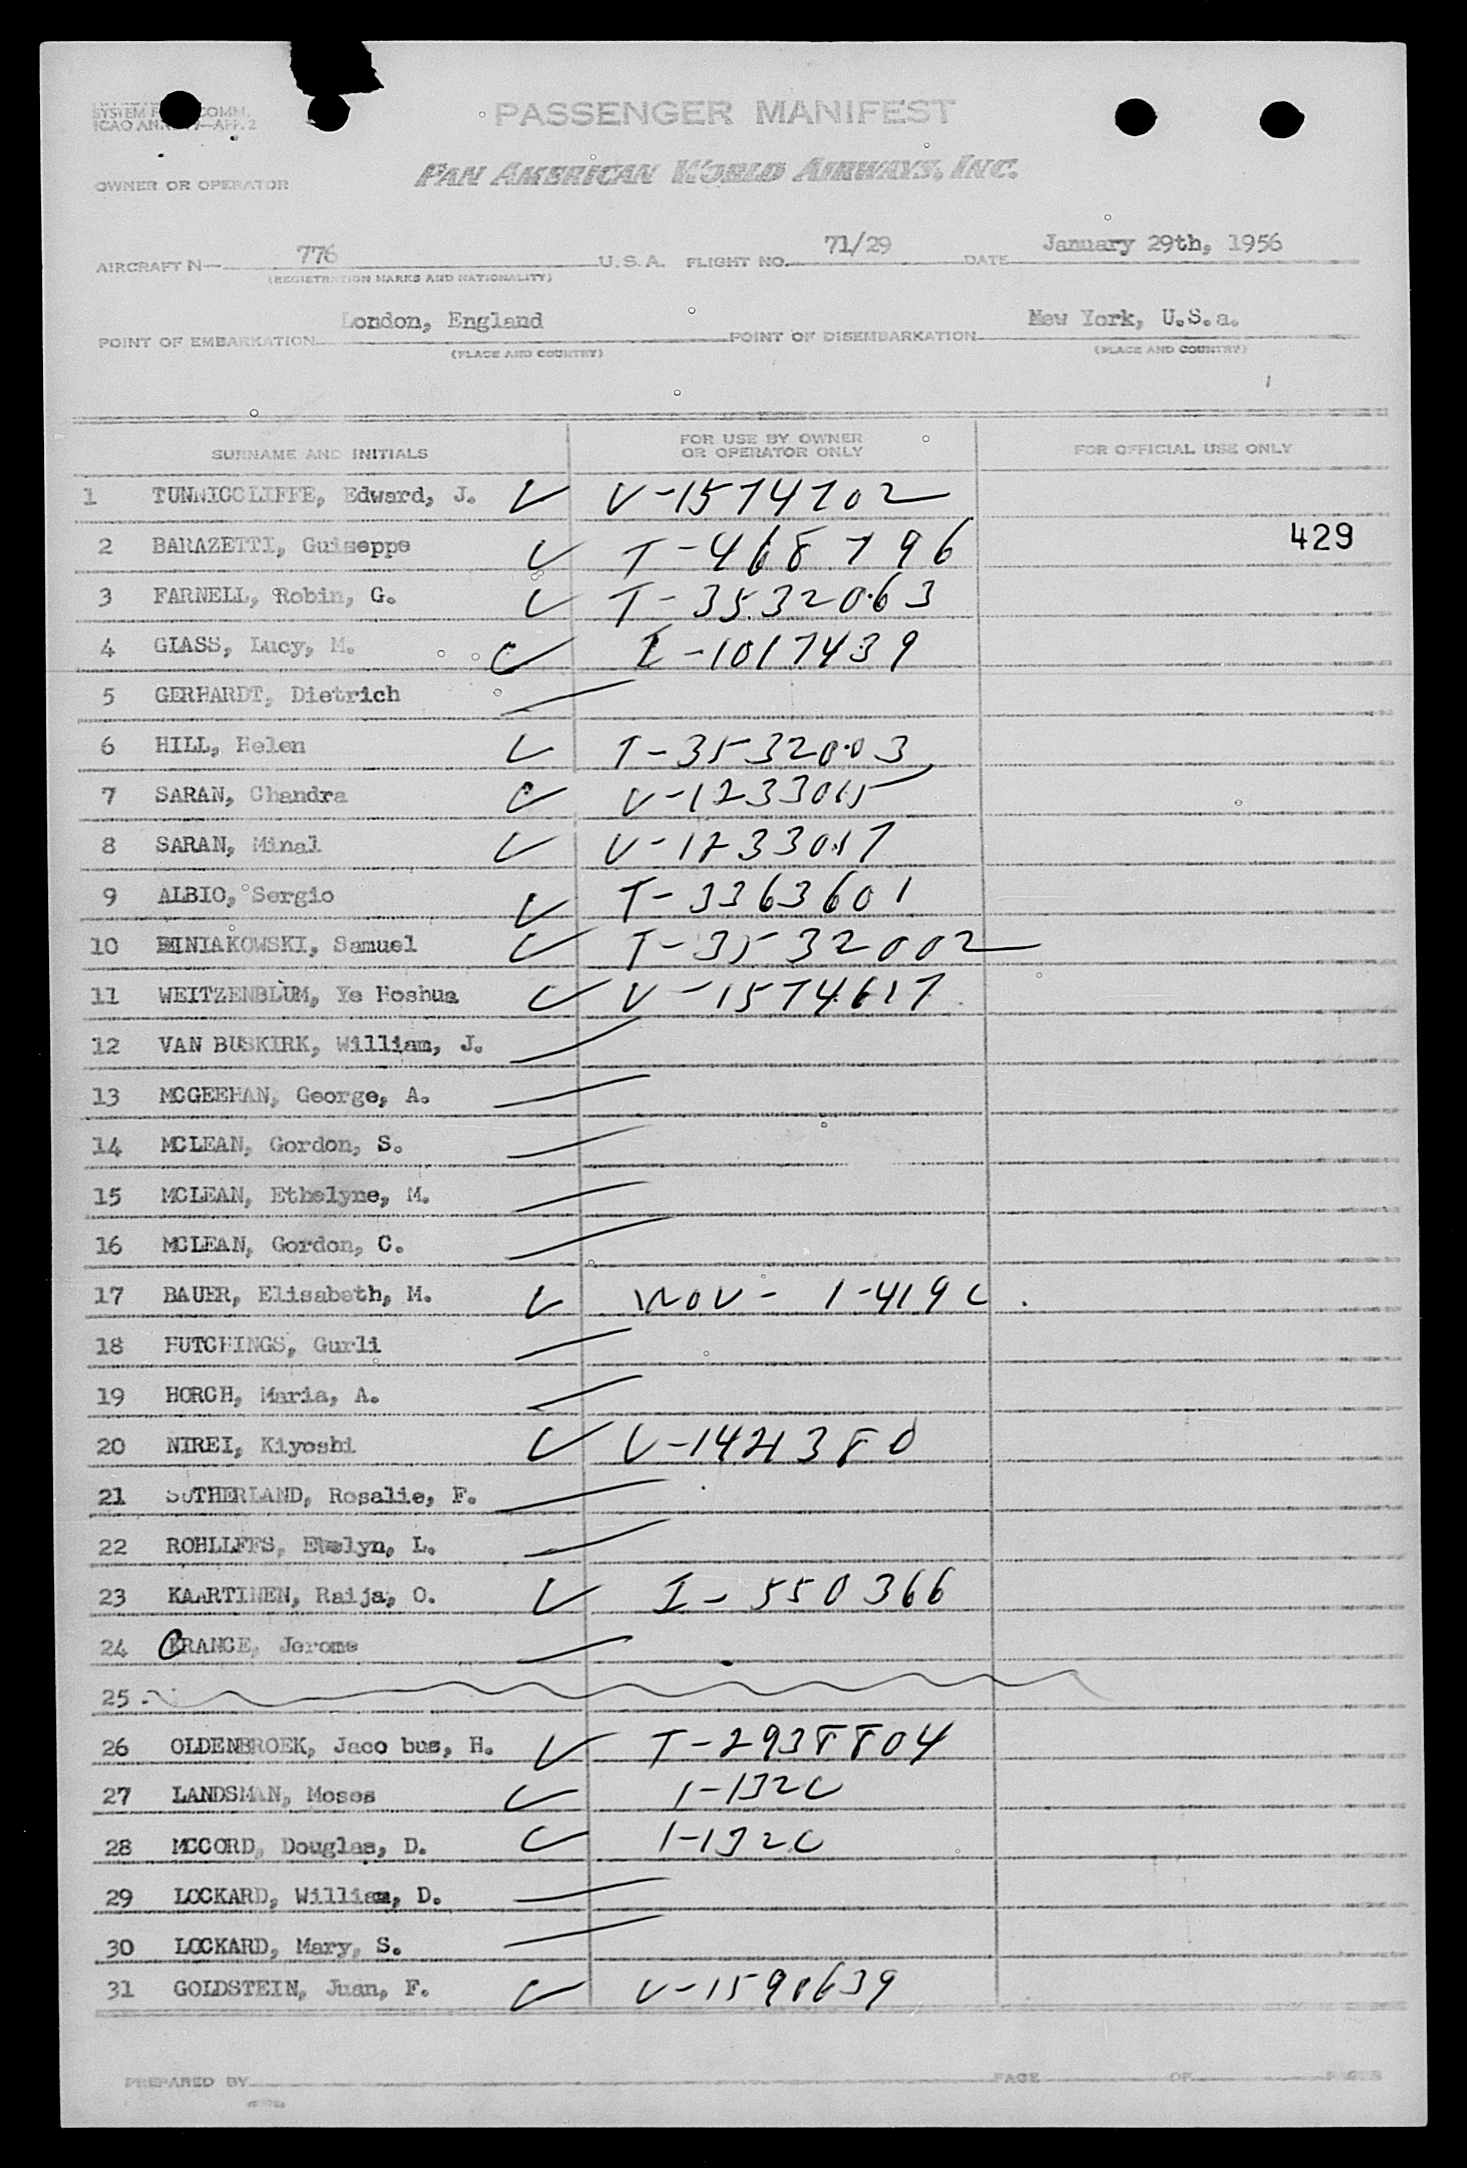 SYSTEM F COMM.
ICAO ANN. 9—APP. 2
PASSENGER MANIFEST
OWNER OR OPERATOR PAN AMERICAN WORLD AIRWAYS, INC.
AIRCRAFT N— 776 U.S.A. FLIGHT NO. 71/29 DATE January 29th, 1956
(REGISTRATION MARKS AND NATIONALITY)
POINT OF EMBARKATION London, England POINT OF DISEMBARKATION New York, U.S.a.
(PLACE AND COUNTRY) (PLACE AND COUNTRY)
SURNAME AND INITIALS FOR USE BY OWNER OR OPERATOR ONLY FOR OFFICIAL USE ONLY
1 TUNNICCLIFFE, Edward, J. V-1574702
2 BARAZETTI, Guiseppe T-468796 429
3 FARNELL, Robin, G. T-3532063
4 GLASS, Lucy, M. I-1017439
5 GERHARDT, Dietrich
6 HILL, Helen T-3532003
7 SARAN, Chandra V-1233015
8 SARAN, Minal V-1233017
9 ALBIO, Sergio T-3363601
10 MINIAKOWSKI, Samuel T-3532002
11 WEITZENBLUM, Ye Hoshua V-1574617
12 VAN BUSKIRK, William, J.
13 MCGEEHAN, George, A.
14 MCLEAN, Gordon, S.
15 MCLEAN, Ethelyne, M.
16 MCLEAN, Gordon, C.
17 BAUER, Elisabeth, M. WOV- 1-419C
18 HUTCHINGS, Gurli
19 HORCH, Maria, A.
20 NIREI, Kiyoshi V-1421380
21 SUTHERLAND, Rosalie, F.
22 ROHLLFFS, Evelyn, L.
23 KAARTINEN, Raija, O. I-550366
24 CRANCE, Jerome
25
26 OLDENBROEK, Jaco bus, H. T-2938804
27 LANDSMAN, Moses 1-132C
28 MCCORD, Douglas, D. 1-132C
29 LOCKARD, William, D.
30 LOCKARD, Mary, S.
31 GOLDSTEIN, Juan, F. V-1590639
PREPARED BY PAGE OF PAGES